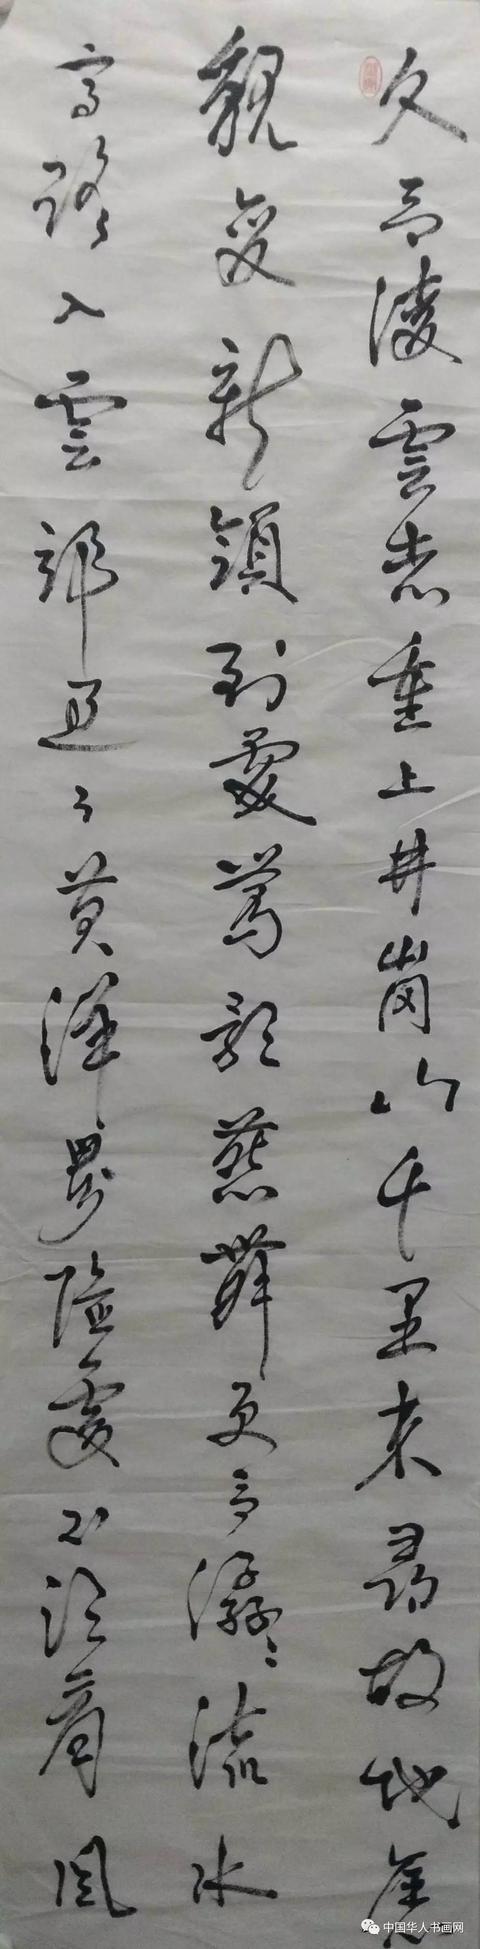 久有凌雲志重上井崗山千里来尋故地舊
貌变新顏到處鶯歌燕舞更有潺々流水
高路入雲端過了黄洋界險處不須看風
中国华人书画网